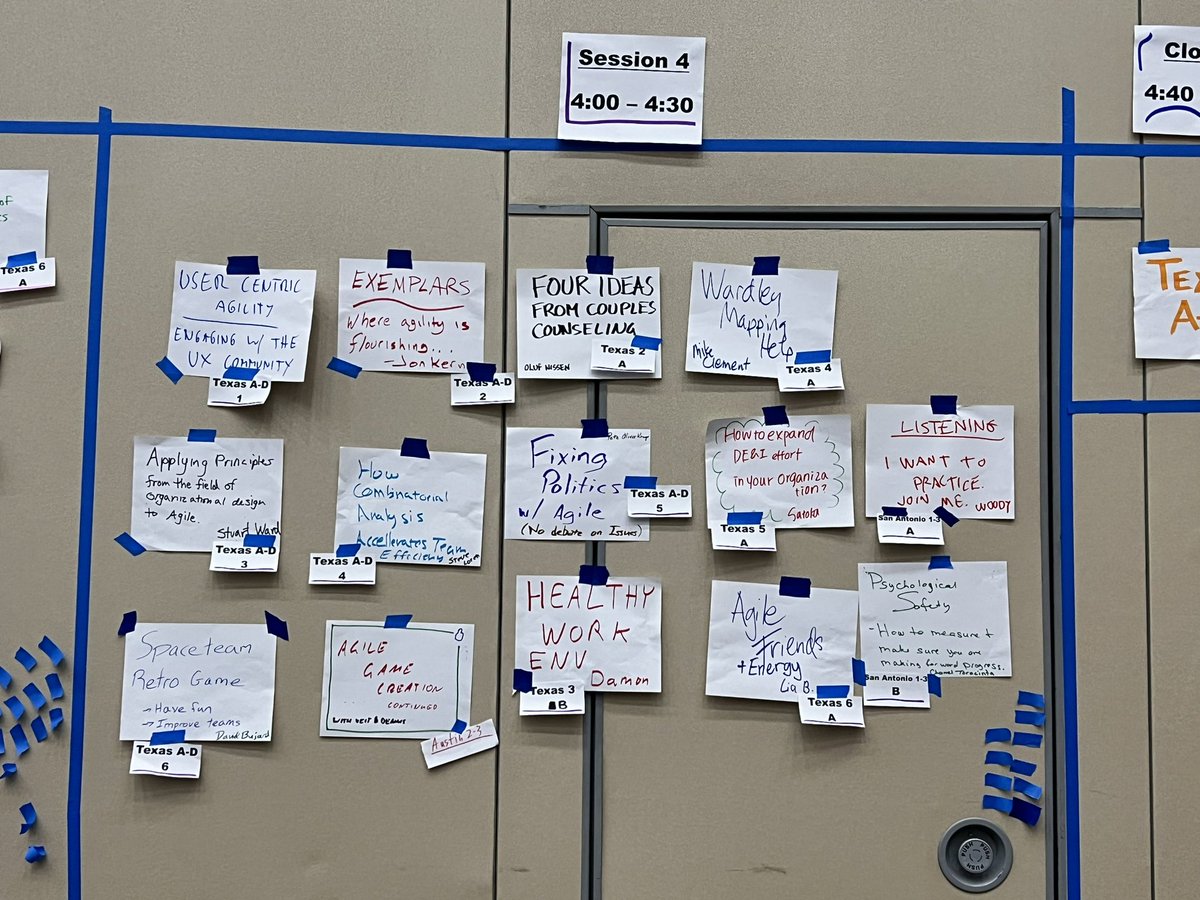 Session 4
4:00 – 4:30
Clo
4:40
of
Texas 6
A
USER CENTRIC
AGILITY
ENGAGING W/ THE
UX COMMUNITY
Texas A-D
1
EXEMPLARS
Where agility is
flourishing...
- Jon Kern
Texas A-D
2
FOUR IDEAS
FROM COUPLES
COUNSELING
OLUF NISSEN
Texas 2
A
Wardley
Mapping
Help
Mike
Clement
Texas 4
A
TEX
A-
Applying Principles
from the field of
Organizational design
to Agile.
Stuart Ward
Texas A-D
3
How
Combinatorial
Analysis
Accelerates Team
Efficiency
Texas A-D
4
Fixing
Politics
w/ Agile
(No debate on Issues)
Texas A-D
5
How to expand
DE&I effort
in your Organiza
tion?
Texas 5
A
LISTENING
I WANT TO
PRACTICE.
JOIN ME. WOODY
San Antonio 1-3
A
Spaceteam
Retro Game
→ Have fun
→ Improve teams
Texas A-D
6
AGILE
GAME
CREATION
CONTINUED
Austin 2-3
HEALTHY
WORK
ENV
Damon
Texas 3
B
Agile
Friends
+ Energy
Lia B.
Texas 6
A
Psychological
Safety
- How to measure +
make sure you are
making forward progress.
San Antonio 1-3
B
PUSH PUSH PUSH